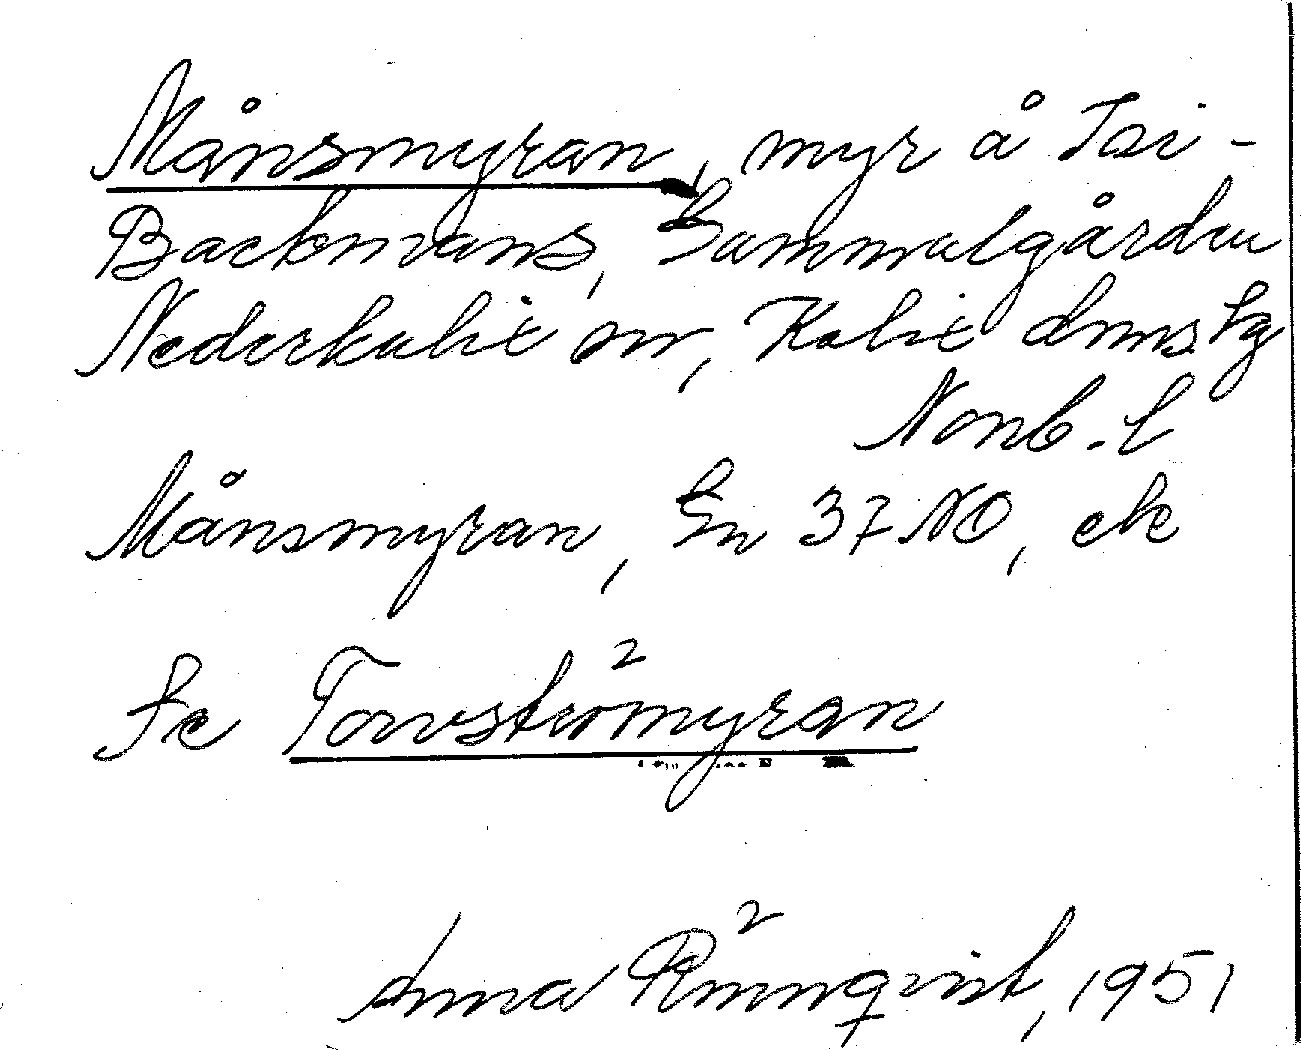 Månsmyran, myr å Tor-
Backmans, Gammelgården
Nederkalix sn, Kalix dms tg
Norrb. l
Månsmyran, En 37 NO, ek
Se Torvströmyran
Anna Rönnqvist, 1951